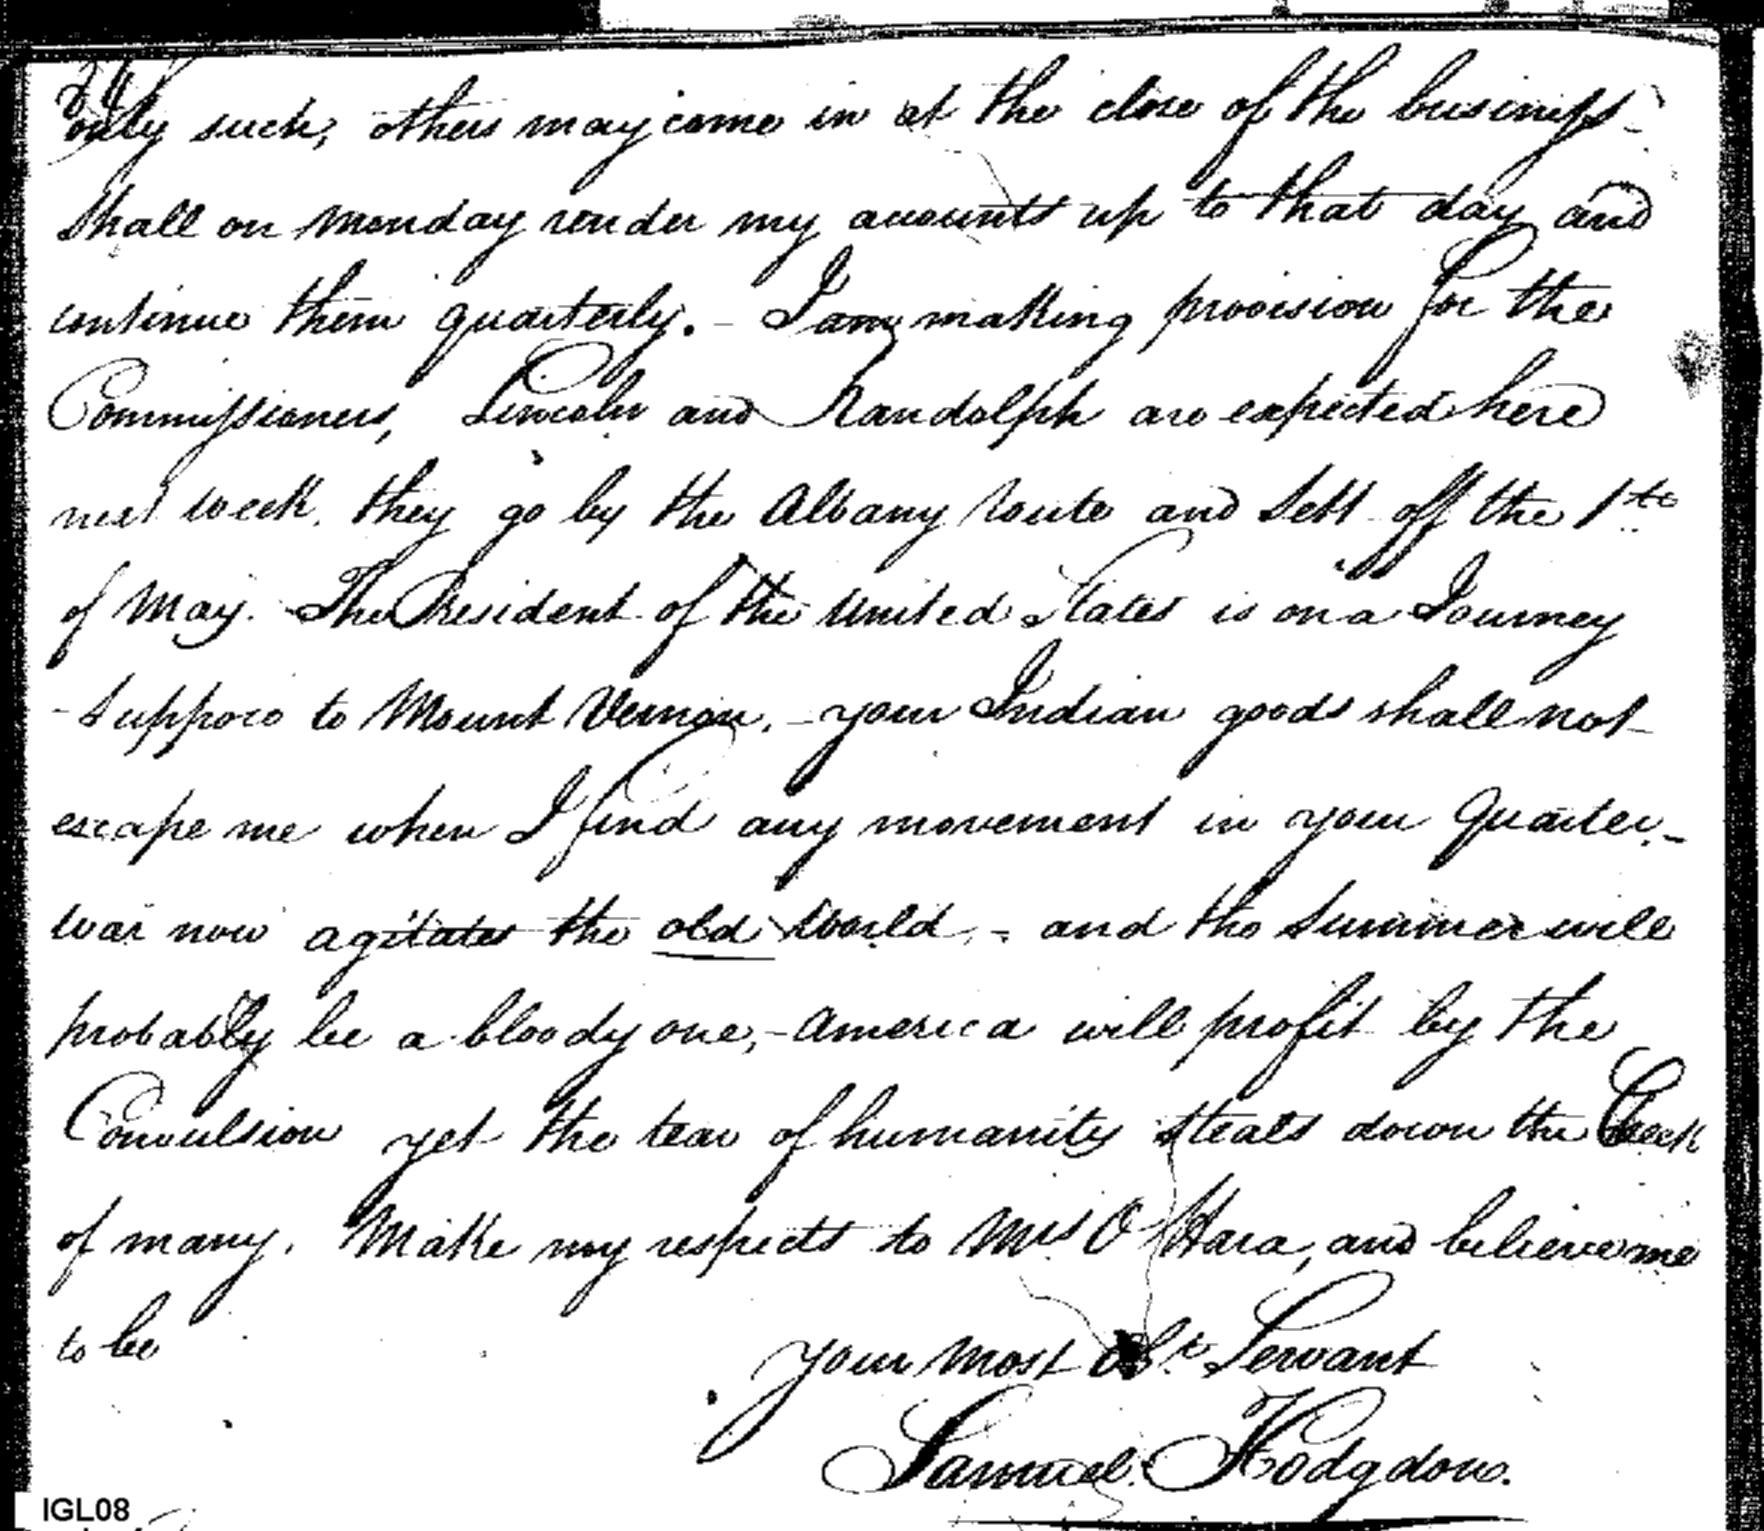 24
only such, others may come in at the close of the business -
shall on Monday render my accounts up to that day and
continue them quarterly. - I am making provision for the
Commissioners, Lincoln and Randolph are expected here
next week. they go by the Albany route and sett off the 1st
of May. The President of the United States is on a Journey
- Suppose to Mount Vernon. - your Indian goods shall not
escape me when I find any movement in your Quarter. -
War now agitates the old World. - and the Summer will
probably be a bloody one, - America will profit by the
Convulsion yet the tear of humanity steals down the Cheek
of many. Make my respects to Mrs O Hara, and believe me
to be
your most Obt. Servant
Samuel Hodgdon.
IGL08